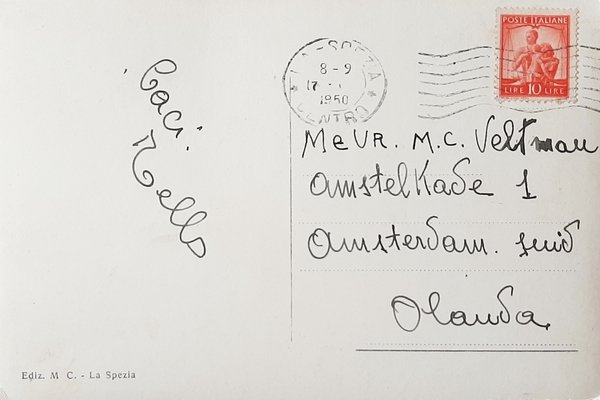 POSTE ITALIANE
LIRE 10 LIRE
LA SPEZIA
8-9
17
1950
CENTRO
Baci.
Nello
MeVR. M.C. Veltman
Amstelkade 1
Amsterdam. zuid
Olanda
Ediz. M C. - La Spezia